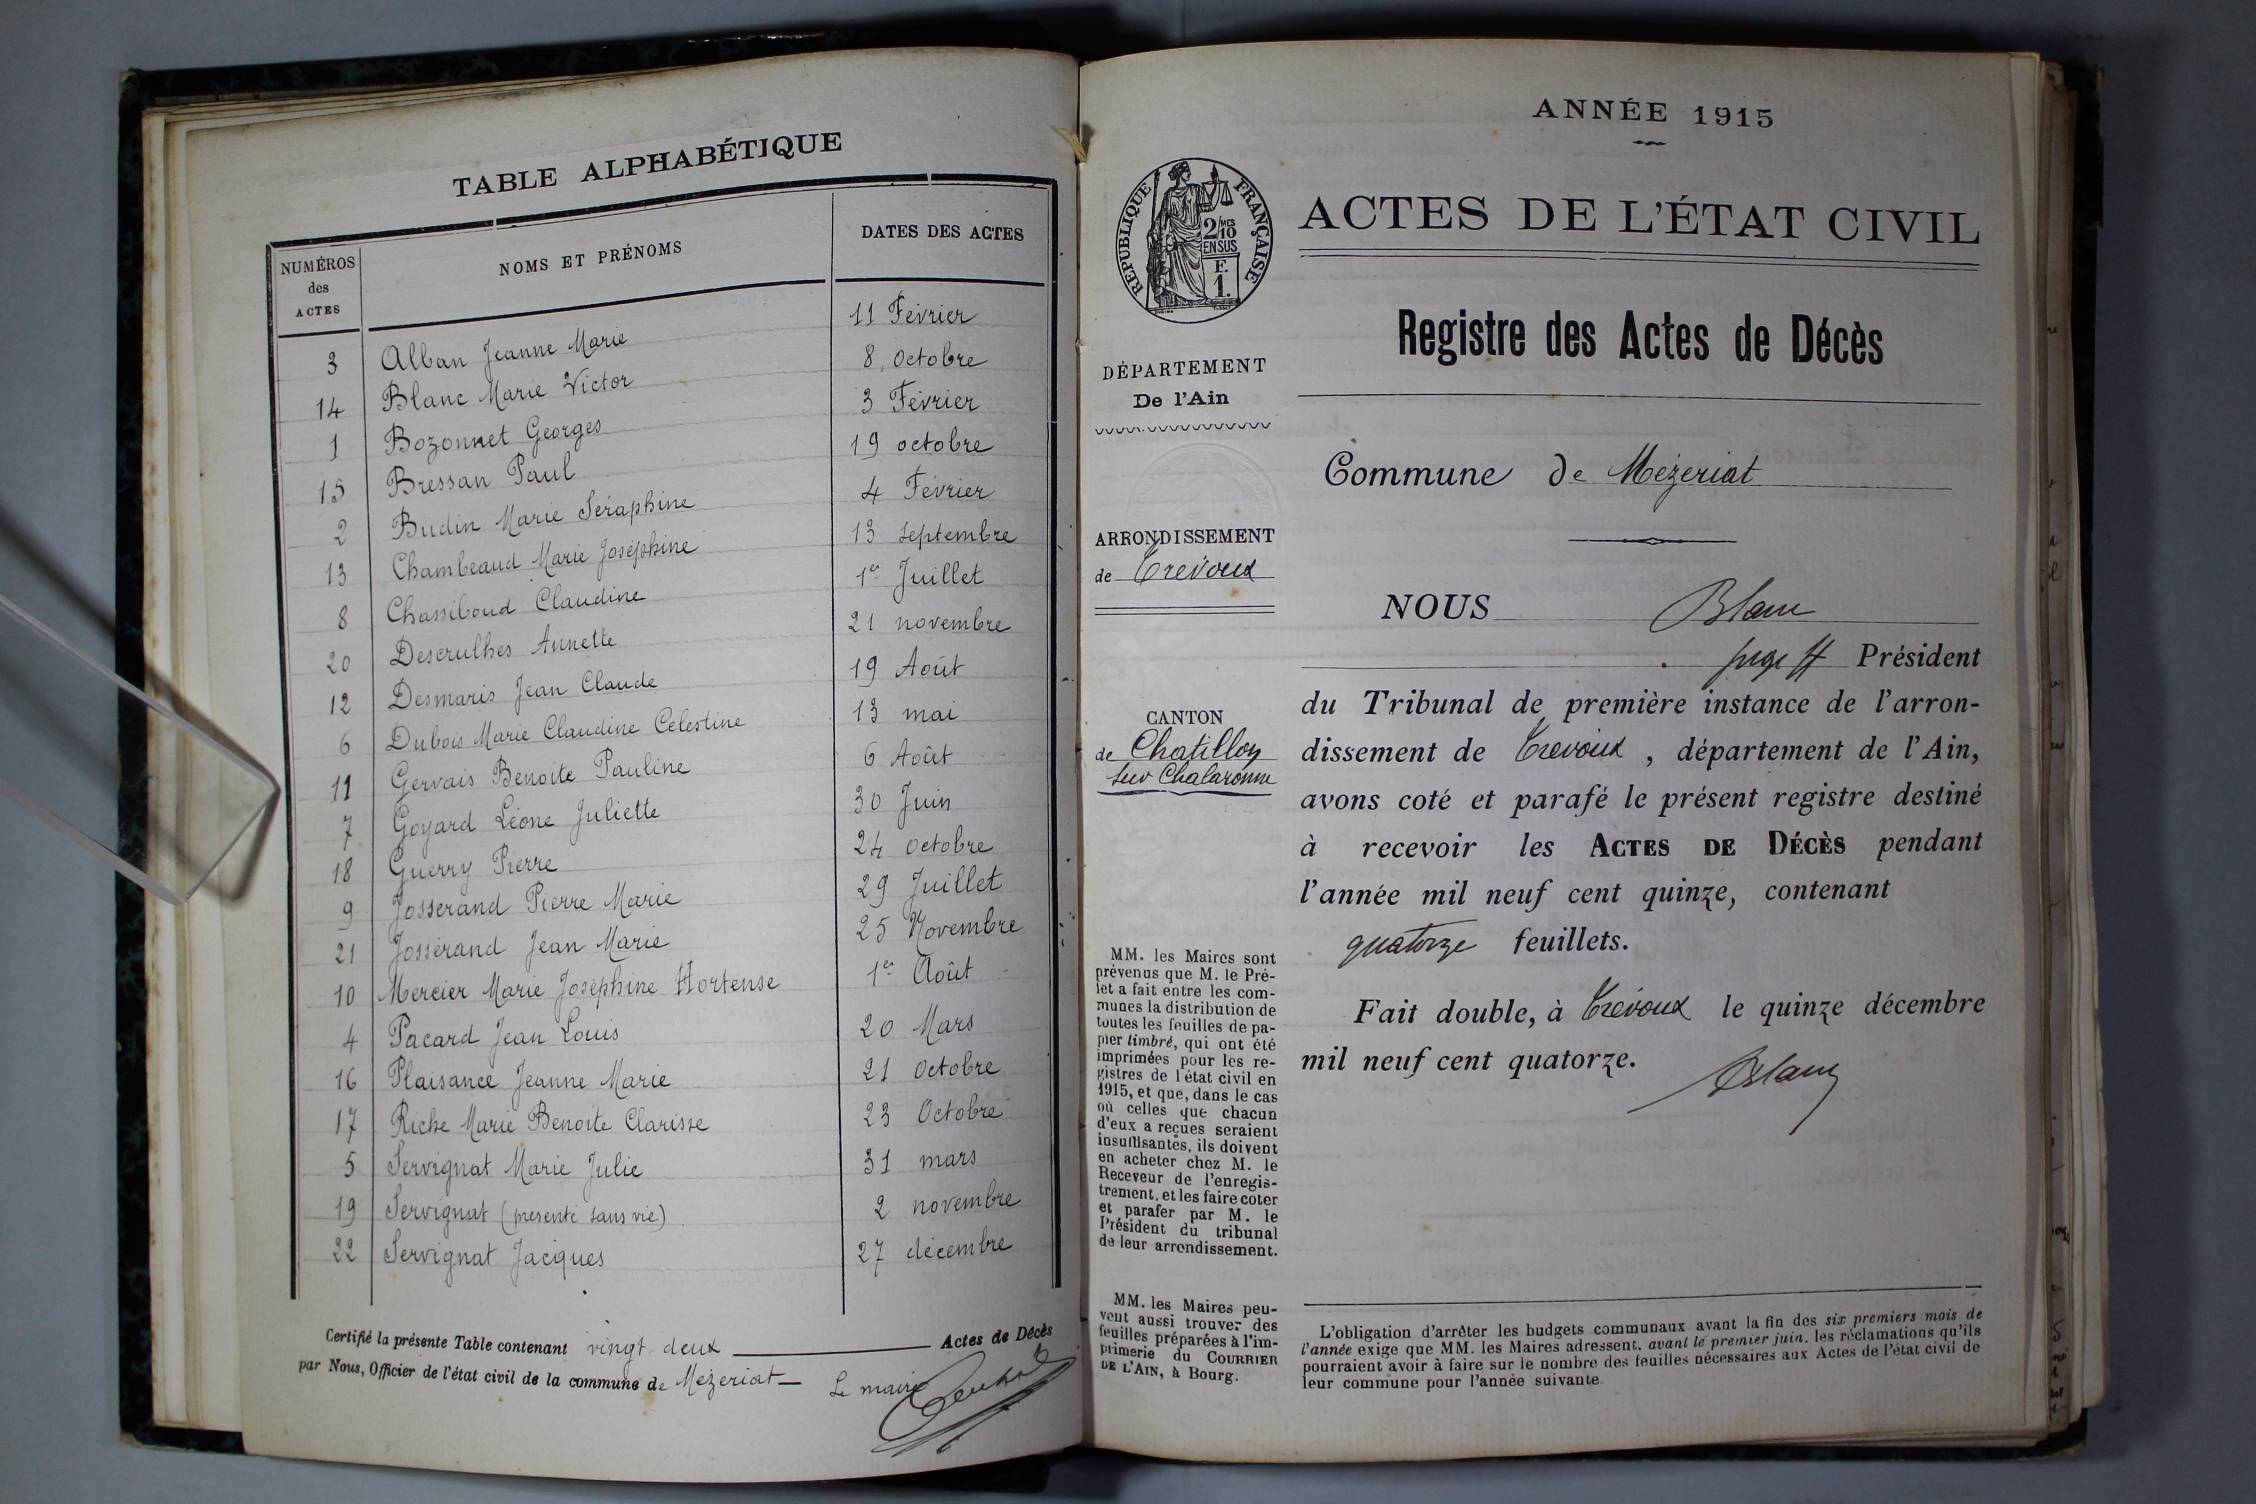 TABLE ALPHABÉTIQUE
NUMÉROS des ACTES NOMS ET PRÉNOMS DATES DES ACTES
3 Alban Jeanne Marie 11 Février
14 Blanc Marie Victor 8 Octobre
1 Bozonnet Georges 3 Février
15 Bressan Paul 19 octobre
2 Budin Marie Séraphine 4 Février
13 Chambeaud Marie Joséphine 13 septembre
8 Chassiboud Claudine 1er Juillet
20 Descrulhes Annette 21 novembre
12 Desmaris Jean Claude 19 Août
6 Dubois Marie Claudine Celestine 13 mai
11 Gervais Benoite Pauline 6 Août
7 Goyard Léone Juliette 30 Juin
18 Guerry Pierre 24 octobre
9 Josserand Pierre Marie 29 Juillet
21 Josserand Jean Marie 25 Novembre
10 Mercier Marie Joséphine Hortense 1er Août
4 Pacard Jean Louis 20 Mars
16 Plaisance Jeanne Marie 21 Octobre
17 Riche Marie Benoite Clarisse 23 Octobre
5 Servignat Marie Julie 31 mars
19 Servignat (présenté sans vie) 2 novembre
22 Servignat Jacques 27 décembre
Certifié la présente Table contenant vingt-deux Actes de Décès
par Nous, Officier de l'état civil de la commune de Mézeriat Le maire
ANNÉE 1915
RÉPUBLIQUE FRANÇAISE
2/10 MES
EN SUS
F.
1.
ACTES DE L'ÉTAT CIVIL
Registre des Actes de Décès
DÉPARTEMENT
De l'Ain
Commune de Mézeriat
ARRONDISSEMENT
de Trévoux
NOUS Blanc
juge ff Président
du Tribunal de première instance de l'arron-
dissement de Trévoux, département de l'Ain,
avons coté et parafé le présent registre destiné
à recevoir les ACTES DE DÉCÈS pendant
l'année mil neuf cent quinze, contenant
quatorze feuillets.
Fait double, à Trévoux le quinze décembre
mil neuf cent quatorze.
Blanc
CANTON
de Chatillon
sur Chalaronne
MM. les Maires sont
prévenus que M. le Pré-
fet a fait entre les com-
munes la distribution de
toutes les feuilles de pa-
pier timbré, qui ont été
imprimées pour les re-
gistres de l'état civil en
1915, et que, dans le cas
où celles que chacun
d'eux a reçues seraient
insuffisantes, ils doivent
en acheter chez M. le
Receveur de l'enregis-
trement, et les faire coter
et parafer par M. le
Président du tribunal
de leur arrondissement.
MM. les Maires peu-
vent aussi trouver des
feuilles préparées à l'im-
primerie du COURRIER
DE L'AIN, à Bourg.
L'obligation d'arrêter les budgets communaux avant la fin des six premiers mois de
l'année exige que MM. les Maires adressent, avant le premier juin, les réclamations qu'ils
pourraient avoir à faire sur le nombre des feuilles nécessaires aux Actes de l'état civil de
leur commune pour l'année suivante.